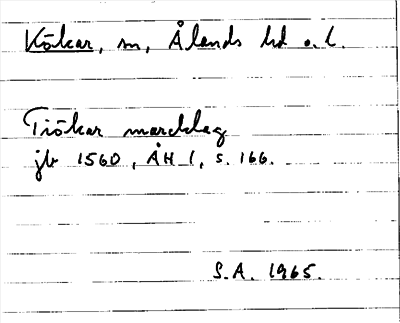 Kökar, sn, Ålands hd o. l.
Tiökar marcklag
jb 1560, ÅH 1, s. 166.
S.A. 1965.